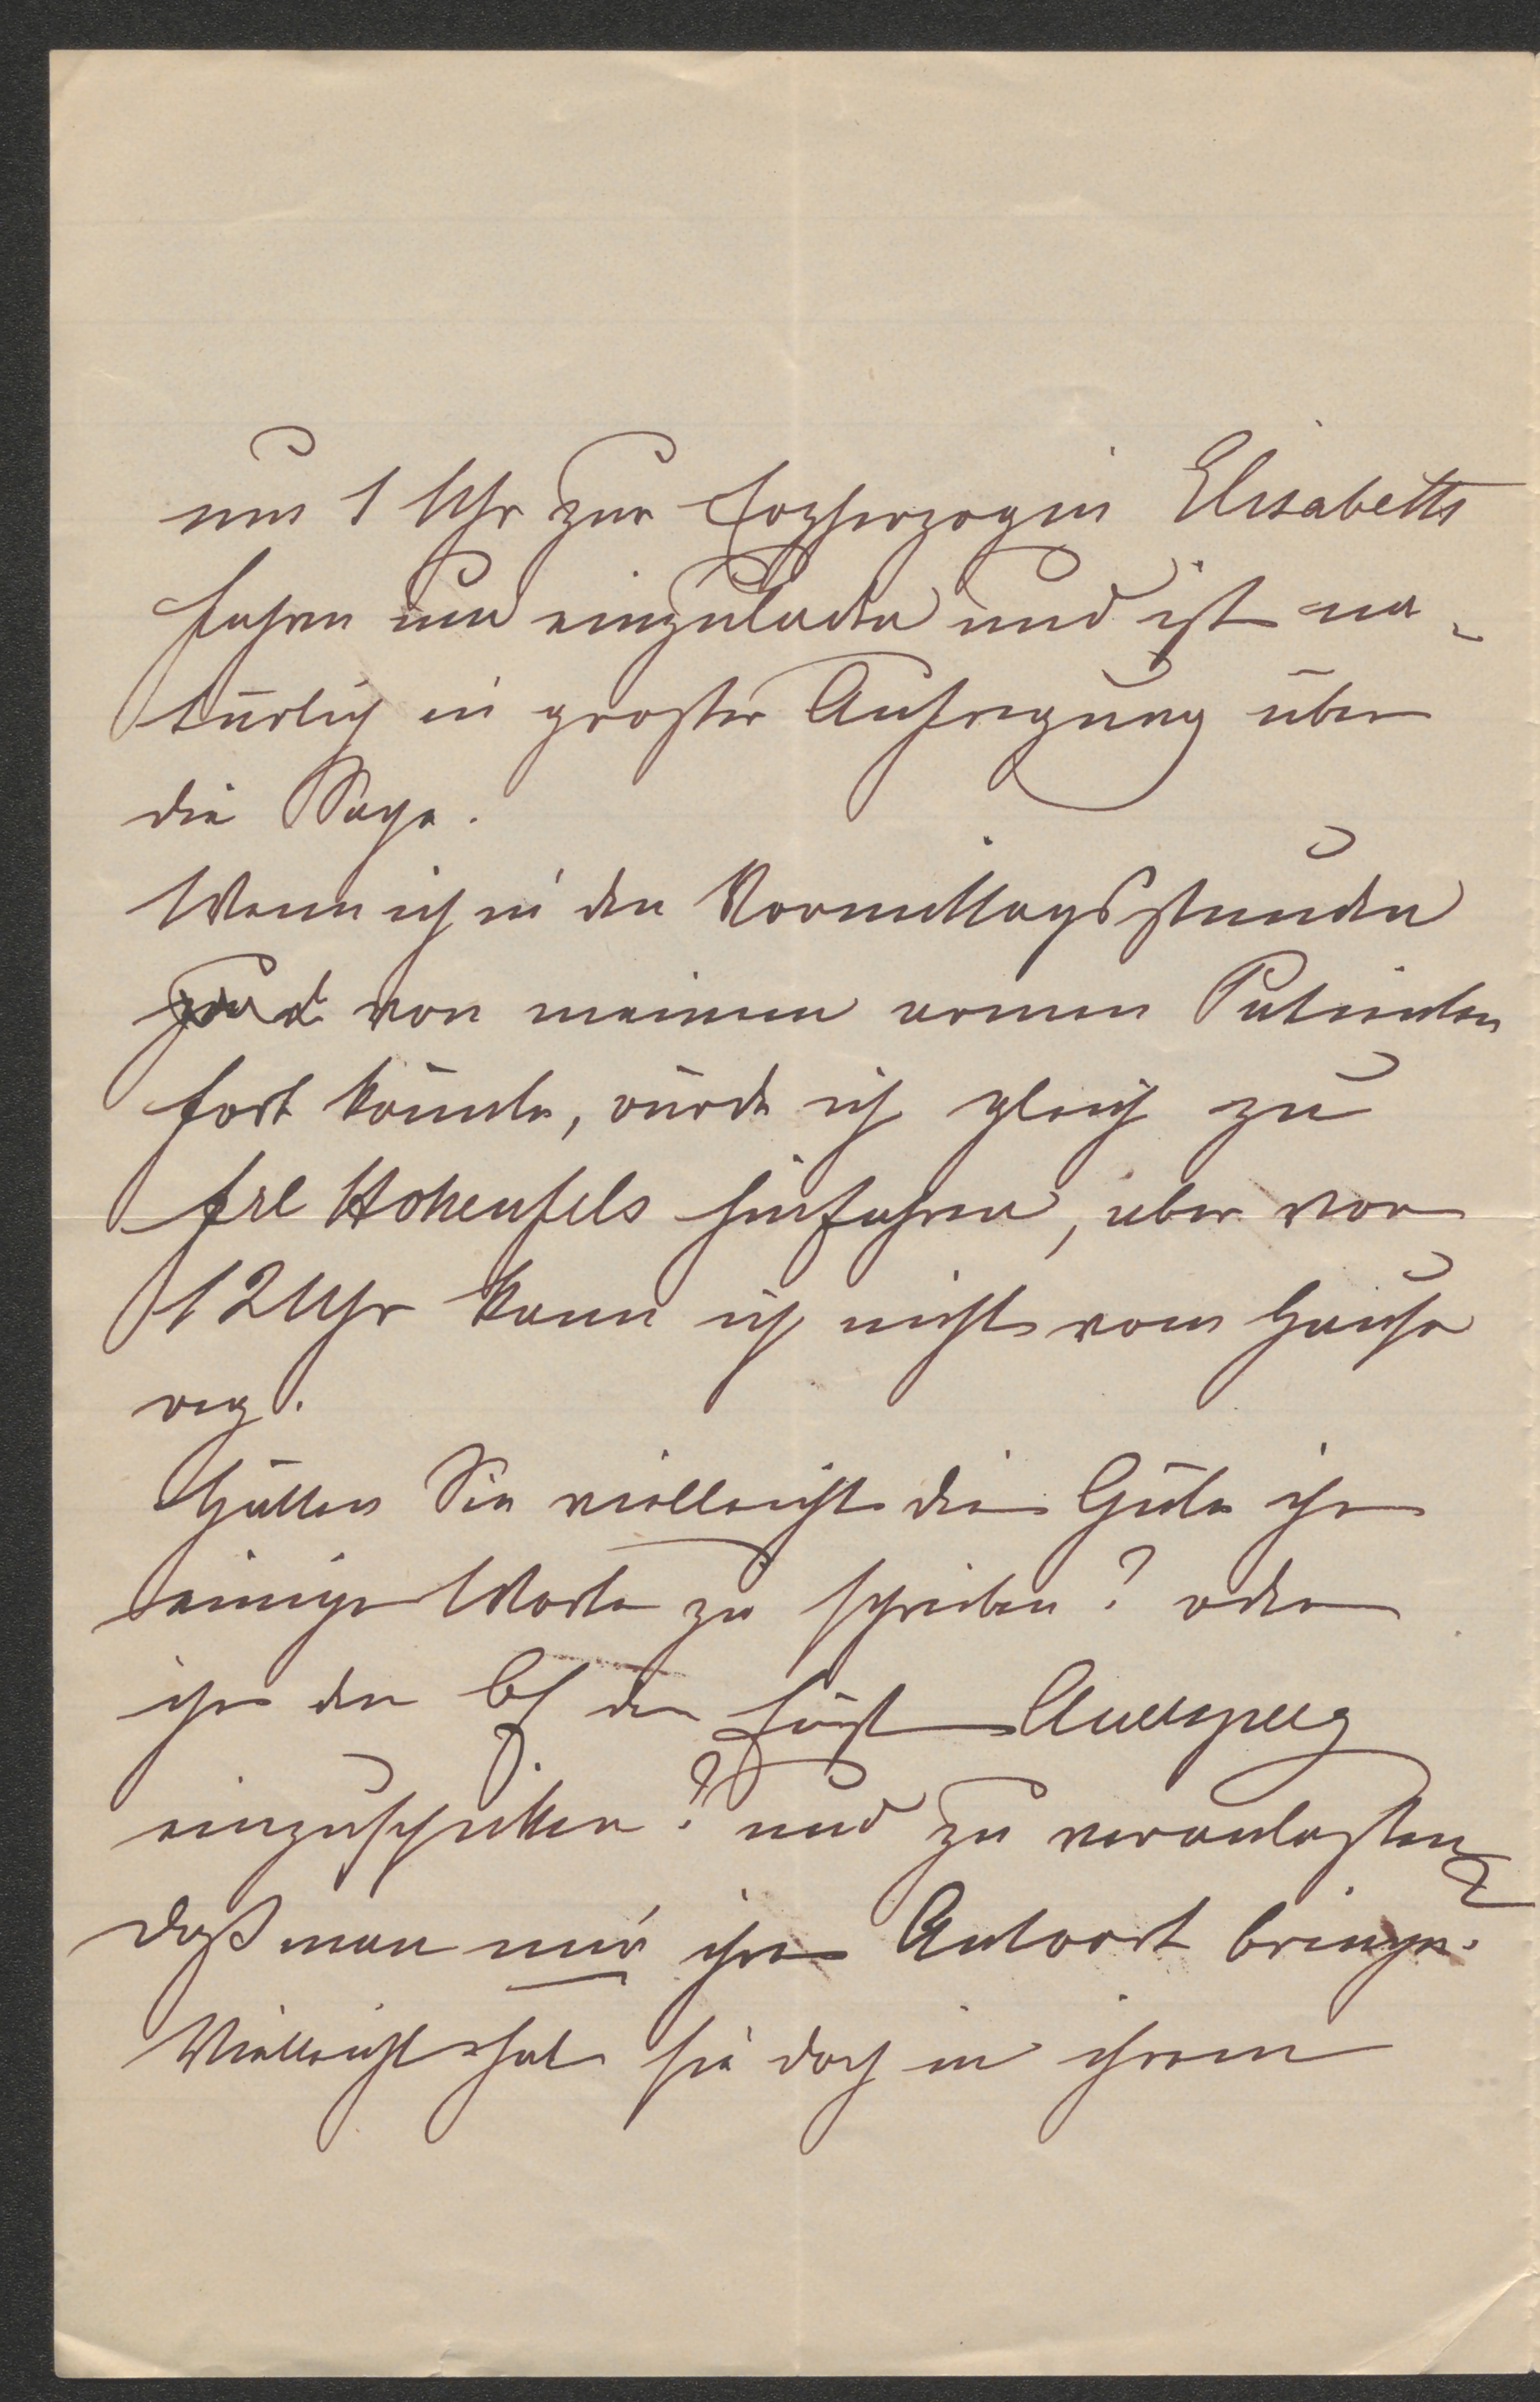 um 1 Uhr zur Erzherzogin Elisabeth
fahren um einzuladen und ist na-
türlich in großer Aufregung über
die Sage.
Wenn ich in den Vormittagsstunden
von meinem armen Patienten
fort könnte, würde ich gleich zu
Frl Hohenfels hinfahren, aber vor
12 Uhr kann ich nicht vom Hause
weg.
Hätten Sie vielleicht die Güte ihr
einige Worte zu schreiben? oder
ihr den der Fürst Auersperg
einzuschicken? und zu veranlaßen
daß man mir ihre Antwort bringe.
Vielleicht hat sie doch in ihrem